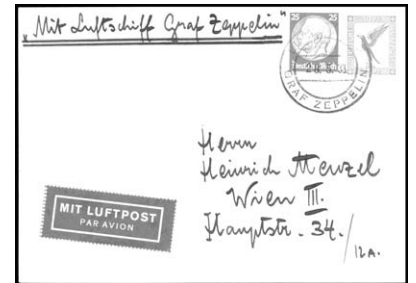 „Mit Luftschiff Graf Zeppelin"
25 25
Deutsches Reich
GRAF ZEPPELIN
Herrn
Heinrich Menzel
Wien III.
Hauptstr. 34./12A.
MIT LUFTPOST
PAR AVION